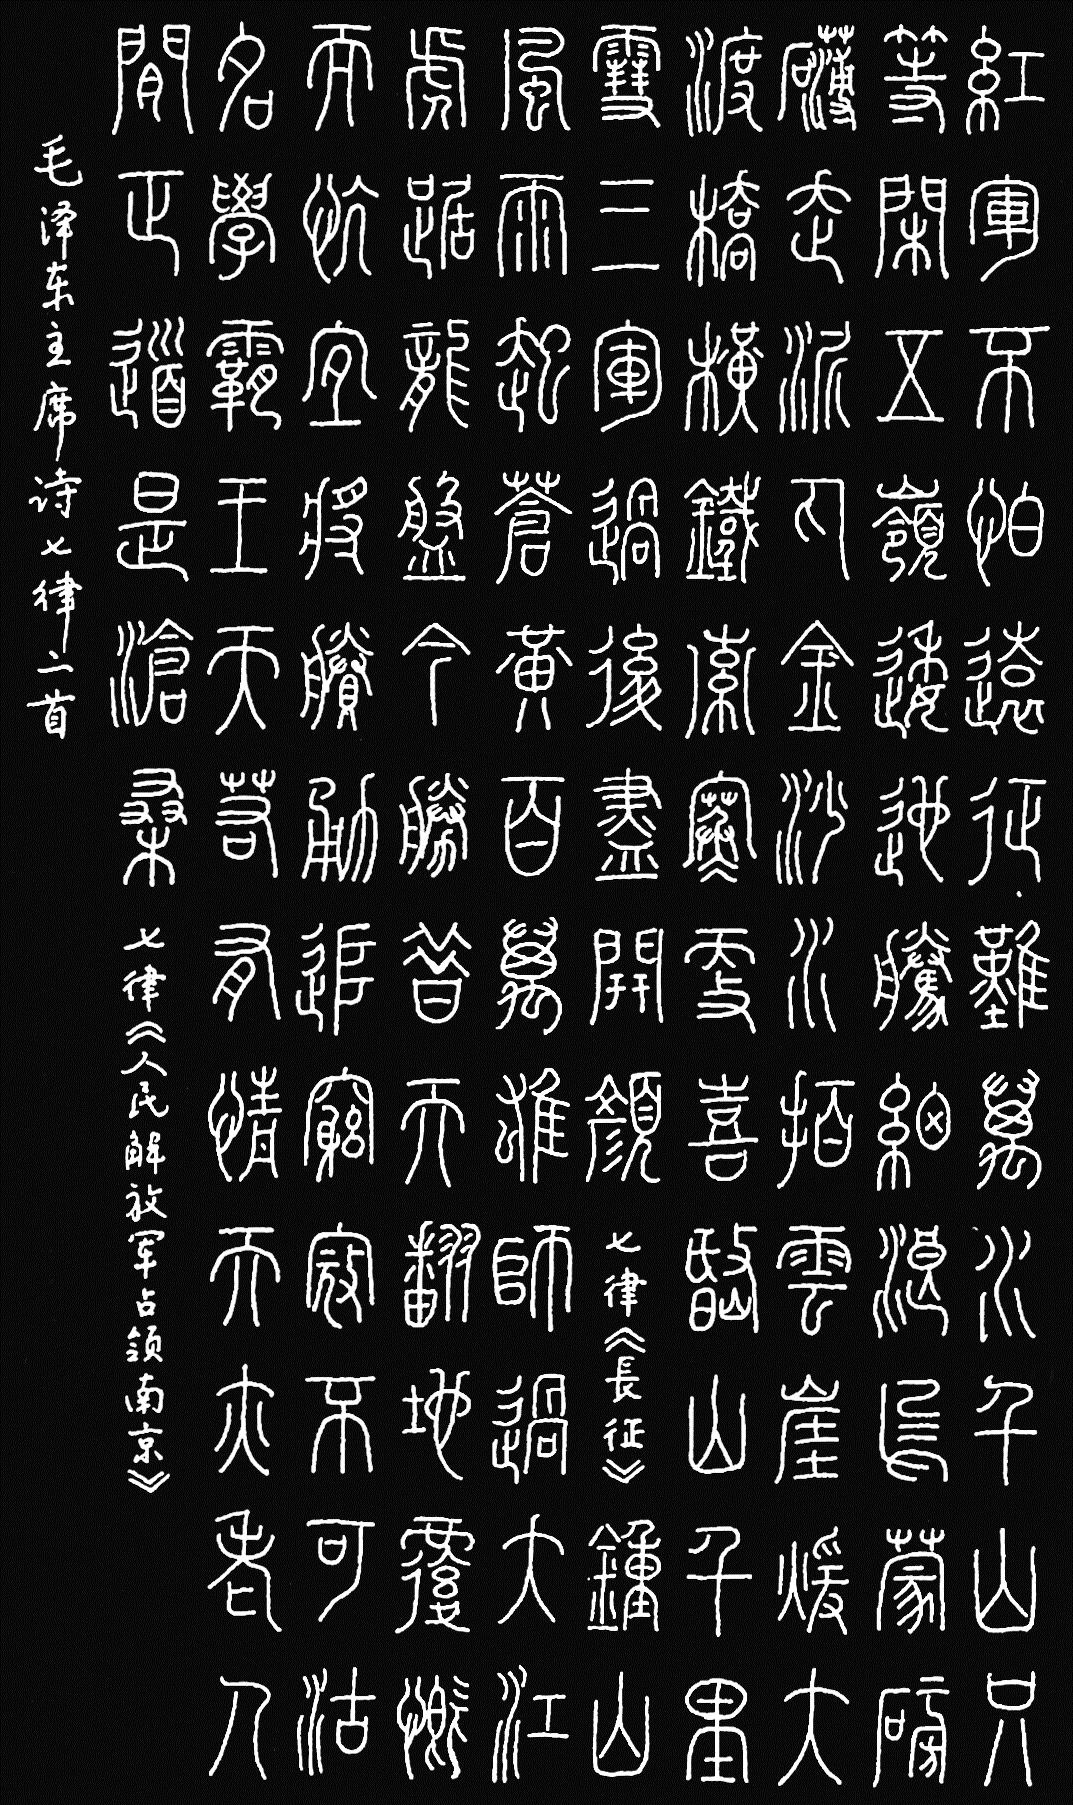 紅軍不怕遠征難萬水千山只
等閑五嶺逶迤騰細浪烏蒙磅
礴走泥丸金沙水拍雲崖暖大
渡橋橫鐵索寒更喜岷山千里
雪三軍過後盡開顏 七律《長征》 鐘山
風雨起蒼黃百萬雄師過大江
虎踞龍盤今勝昔天翻地覆慨
而忼宜將賸勇追窮寇不可沽
名學霸王天若有情天亦老人
間正道是滄桑 七律《人民解放军占领南京》
毛泽东主席诗七律二首